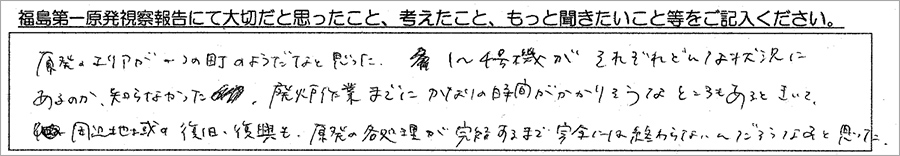 福島第一原発視察報告にて大切だと思ったこと、考えたこと、もっと聞きたいこと等をご記入ください。
原発のエリアが一つの町のようだなと思った。1~4号機がそれぞれどんな状況に
あるのか、知らなかった。廃炉作業までにかなりの時間がかかりそうなところもあると きいて、
周辺地域の復旧・復興も、原発の各処理が完結するまで完全には終わらないんだろうなあと思った。